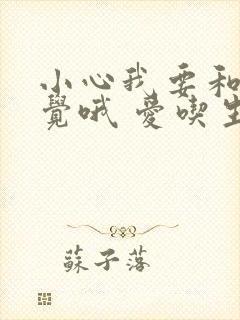 小心我要和
覺哦 愛喫生
蘇子落